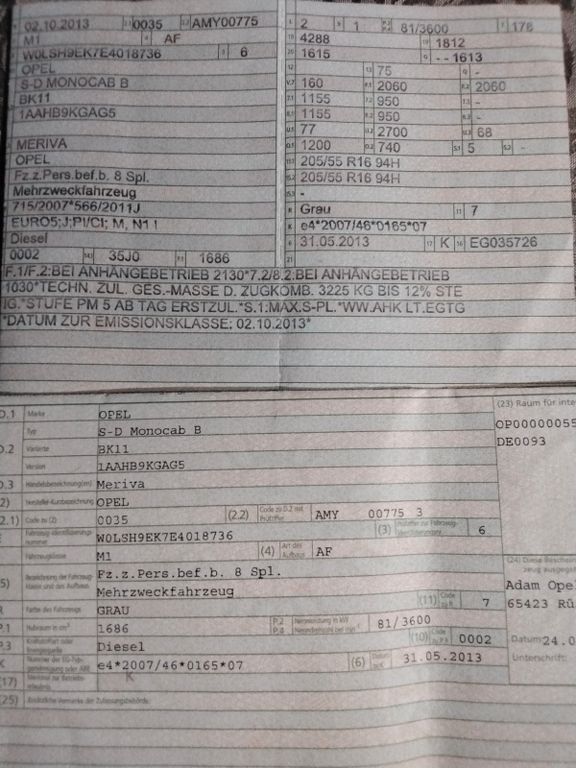 02.10.2013 0035 AMY00775
M1 AF
W0LSH9EK7E4018736 6
OPEL
S-D MONOCAB B
BK11
1AAHB9KGAG5
MERIVA
OPEL
Fz.z.Pers.bef.b. 8 Spl.
Mehrzweckfahrzeug
715/2007*566/2011J
EURO5;J;PI/CI; M, N1 I
Diesel
0002 35J0 1686
2 1 81/3600 176
4288 1812
1615 - - 1613
75 -
160 2060 2060
1155 950 -
1155 950 -
77 2700 68
1200 740 5 -
205/55 R16 94H
205/55 R16 94H
-
Grau 7
e4*2007/46*0165*07
31.05.2013 K EG035726
F.1/F.2:BEI ANHÄNGEBETRIEB 2130*7.2/8.2:BEI ANHÄNGEBETRIEB
1030*TECHN. ZUL. GES.-MASSE D. ZUGKOMB. 3225 KG BIS 12% STE
IG.*STUFE PM 5 AB TAG ERSTZUL.*S.1:MAX.S-PL.*WW.AHK LT.EGTG
*DATUM ZUR EMISSIONSKLASSE: 02.10.2013*
D.1 Marke OPEL
Typ S-D Monocab B
D.2 Variante BK11
Version 1AAHB9KGAG5
D.3 Handelsbezeichnung(en) Meriva
(2) Hersteller-Kurzbezeichnung OPEL
(2.1) Code zu (2) 0035 (2.2) Code zu D.2 mit Prüfziffer AMY 00775 3
E Fahrzeug-Identifizierungs-nummer W0LSH9EK7E4018736 (3) Prüfziffer zur Fahrzeug-Identifizierungsnr. 6
Fahrzeugklasse M1 (4) Art des Aufbaus AF
(5) Bezeichnung der Fahrzeug-klasse und des Aufbaus Fz.z.Pers.bef.b. 8 Spl.
Mehrzweckfahrzeug
R Farbe des Fahrzeugs GRAU (11) Code zu R 7
P.1 Hubraum in cm³ 1686 P.2 P.4 Nennleistung in kW Nenndrehzahl bei min-1 81/3600
P.3 Kraftstoffart oder Energiequelle Diesel (10) Code zu P.3 0002
K Nummer der EG-Typ-genehmigung oder ABE e4*2007/46*0165*07 (6) Datum zu K 31.05.2013
(17) Merkmal zur Betriebs-erlaubnis K
(25) Zusätzliche Vermerke der Zulassungsbehörde:
(23) Raum für inte
OP00000055
DE0093
(24) Diese Beschein
zeug ausgegeb
Adam Opel
65423 Rü
Datum 24.0
Unterschrift: